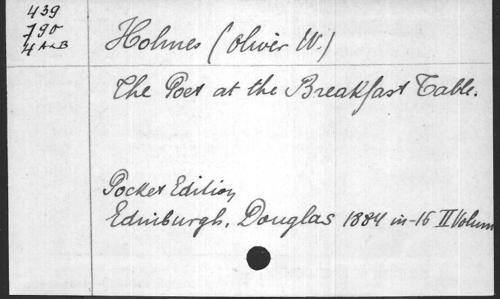 439
790
4 A & B
Holmes (Oliver W.)
The Poet at the Breakfast Table.
Pocket Edition
Edinburgh, Douglas 1884 in-16 II Volum